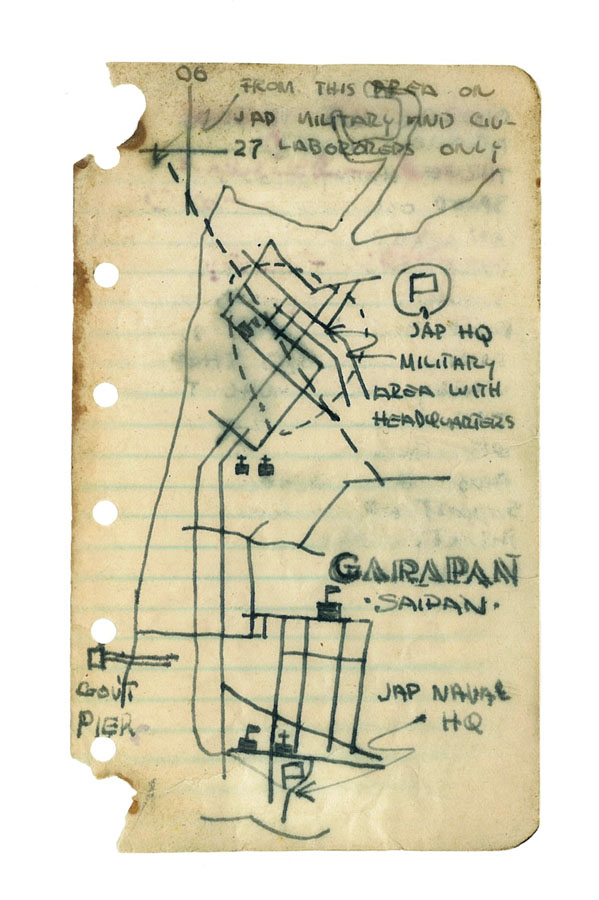 06
FROM THIS AREA ON
JAP MILITARY AND CIV-
27 LABORZREDS ONLY
JAP HQ
MILITARY
AREA WITH
HEADQUARTERS
GARAPAN
·SAIPAN·
GOV'T
PIER
JAP NAVAL
HQ